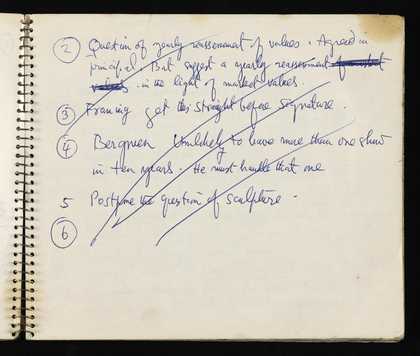 2 Question of yearly reassessment of values. Agreed in
principal. But suggest a yearly reassessment
in the light of market values.
3 Framing get this straight before signature.
4 Bergruen Unlikely to have more than one show
in ten years. He must handle that one
5 Postpone the question of sculpture.
6